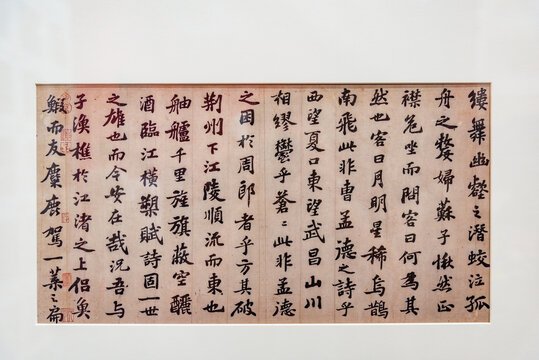 縷舞幽壑之潛蛟泣孤
舟之嫠婦蘇子愀然正
襟危坐而問客曰何為其
然也客曰月明星稀烏鵲
南飛此非曹孟德之詩乎
西望夏口東望武昌山川
相繆鬱乎蒼〻此非孟德
之困於周郎者乎方其破
荊州下江陵順流而東也
舳艫千里旌旗蔽空釃
酒臨江橫槊賦詩固一世
之雄也而今安在哉況吾與
子漁樵於江渚之上侶魚
鰕而友麋鹿駕一葉之扁